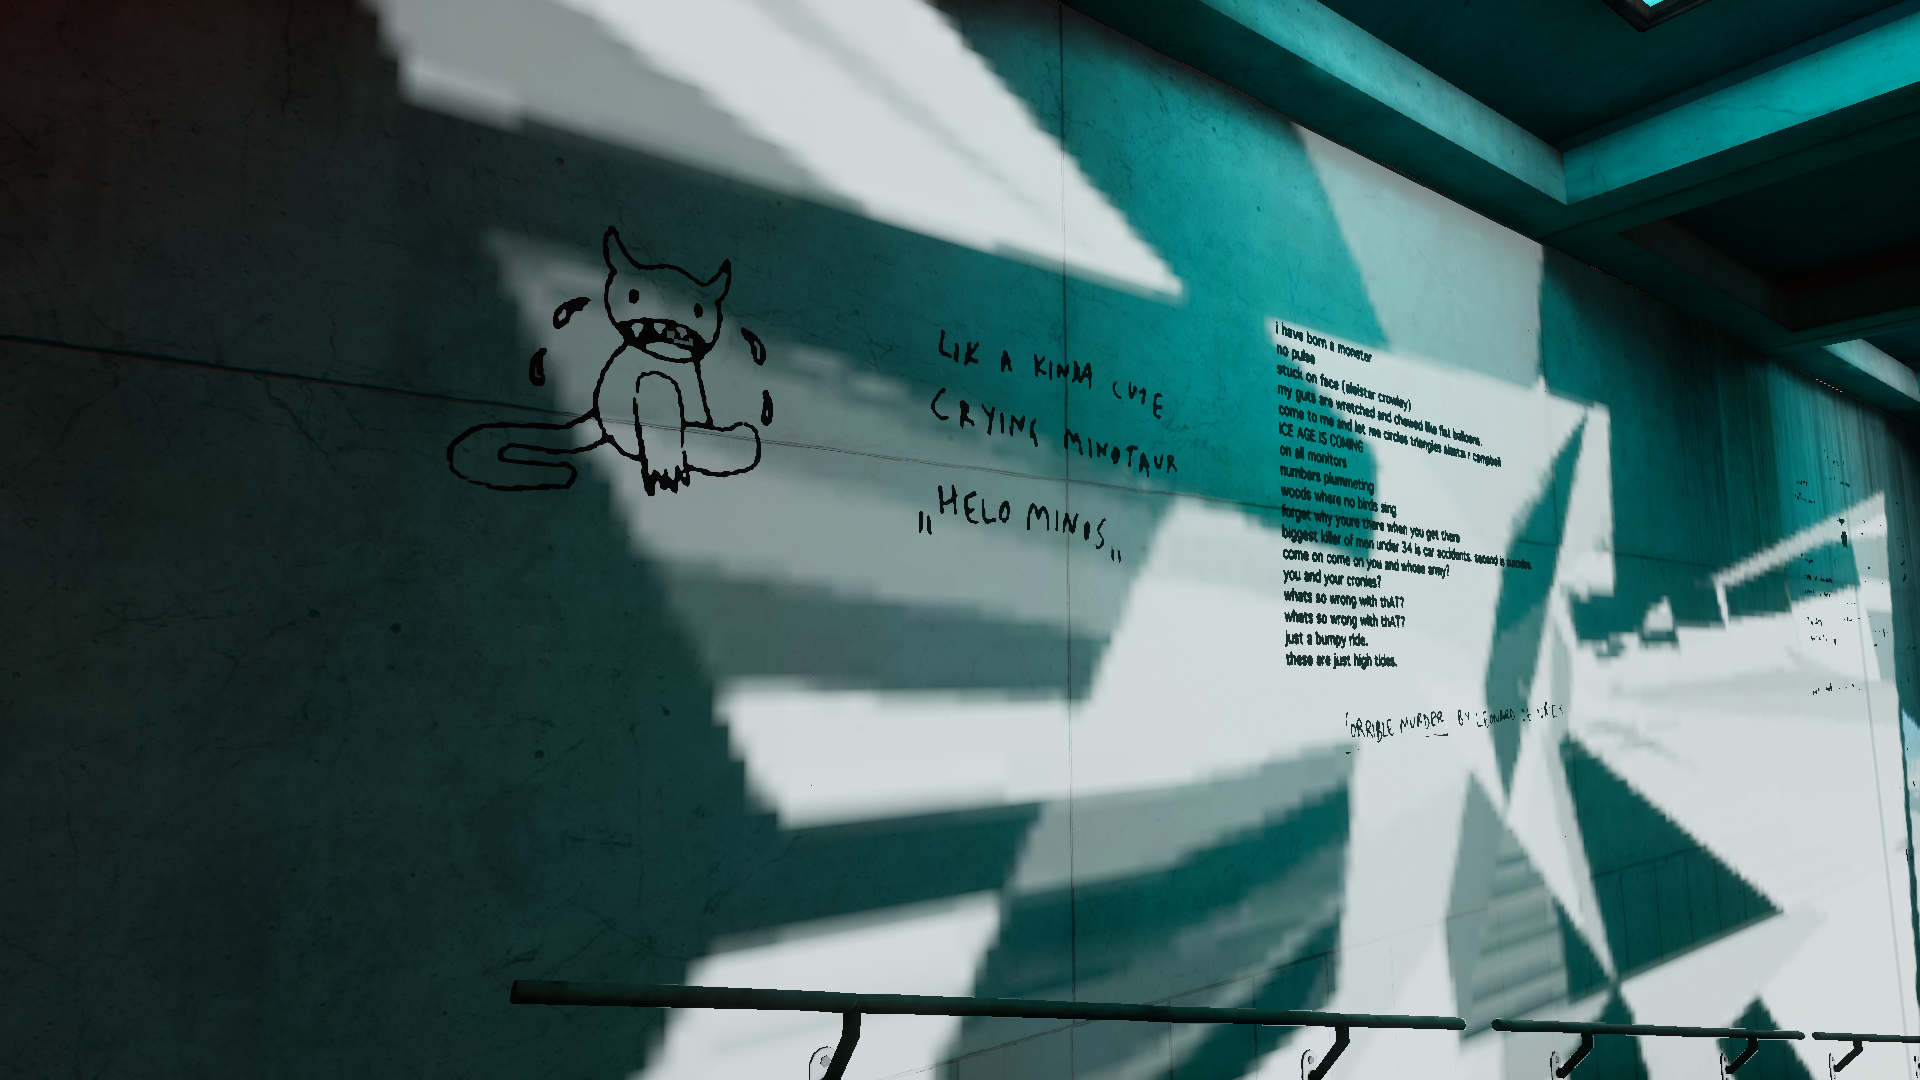 LIK A KINDA CUTE
CRYING MINOTAUR
"HELO MINOS"
i have born a monster
no pulse
stuck on face (aleister crowley)
my guts are wretched and chewed like flat balloons.
come to me and let me circles triangles silence r campbell
ICE AGE IS COMING
on all monitors
numbers plummeting
woods where no birds sing
forget why youre there when you get there
biggest killer of men under 34 is car accidents. second is suicides.
come on come on you and whose army?
you and your cronies?
whats so wrong with thAT?
whats so wrong with thAT?
just a bumpy ride.
these are just high tides.
ORRIBLE MURDER BY LEONARD